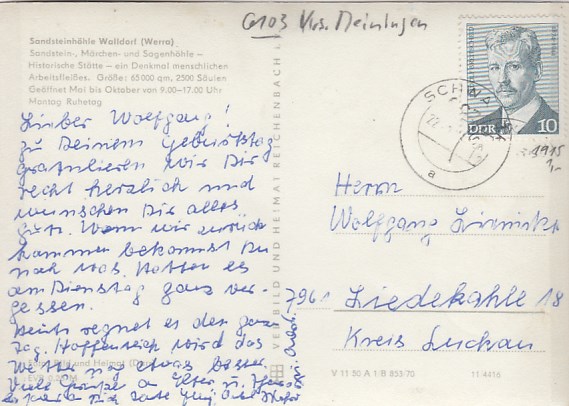 G103 Krs. Meiningen
Sandsteinhöhle Walldorf (Werra)
Sandstein-, Märchen- und Sagenhöhle –
Historische Stätte – ein Denkmal menschlichen
Arbeitsfleißes. Größe: 65 000 qm, 2500 Säulen
Geöffnet Mai bis Oktober von 9.00–17.00 Uhr
Montag Ruhetag
Lieber Wolfgang!
Zu Deinem Geburtstag
gratulieren wir Dir
recht herzlich und
wünschen Dir alles
gute. Wenn wir zurück
kommen bekommst Du
noch was. Hatten es
am Dienstag ganz ver-
gessen.
Heute regnet es den ganz
Tag. Hoffentlich wird das
Wetter noch etwas besser.
Viele Grüße an
VEB BILD UND HEIMAT REICHENBACH I.
Bild und Heimat
EVP 0,20 M
SCHWA
a
DDR 10
1915
1,-
Herrn
Wolfgang
7961 Liedekahle 18
Kreis Luckau
V 11 50 A 1 B 853-70 11/4416